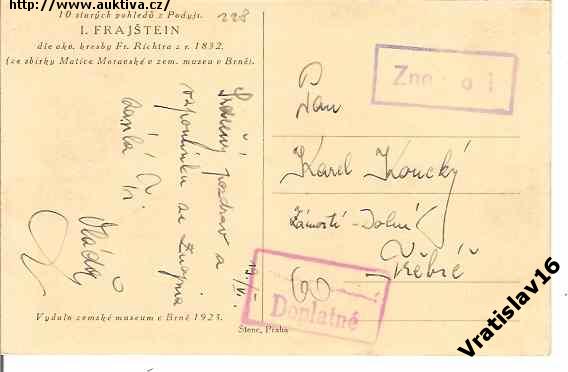 http://www.auktiva.cz/
228
10 starých pohledů z Podyjí.
I. FRAJŠTEIN
dle akv. kresby Fr. Richtra z r. 1832.
(ze sbírky Matice Moravské v zem. museu v Brně).
Srdečný pozdrav a
vzpomínku ze Znojma
zasílá
19/V.
Vydalo zemské museum v Brně 1923.
Štenc, Praha
Zno o 1
Pan
Karel Koucký
Zámostí - Dolní
Třebíč
60
Doplatné
Vratislav16